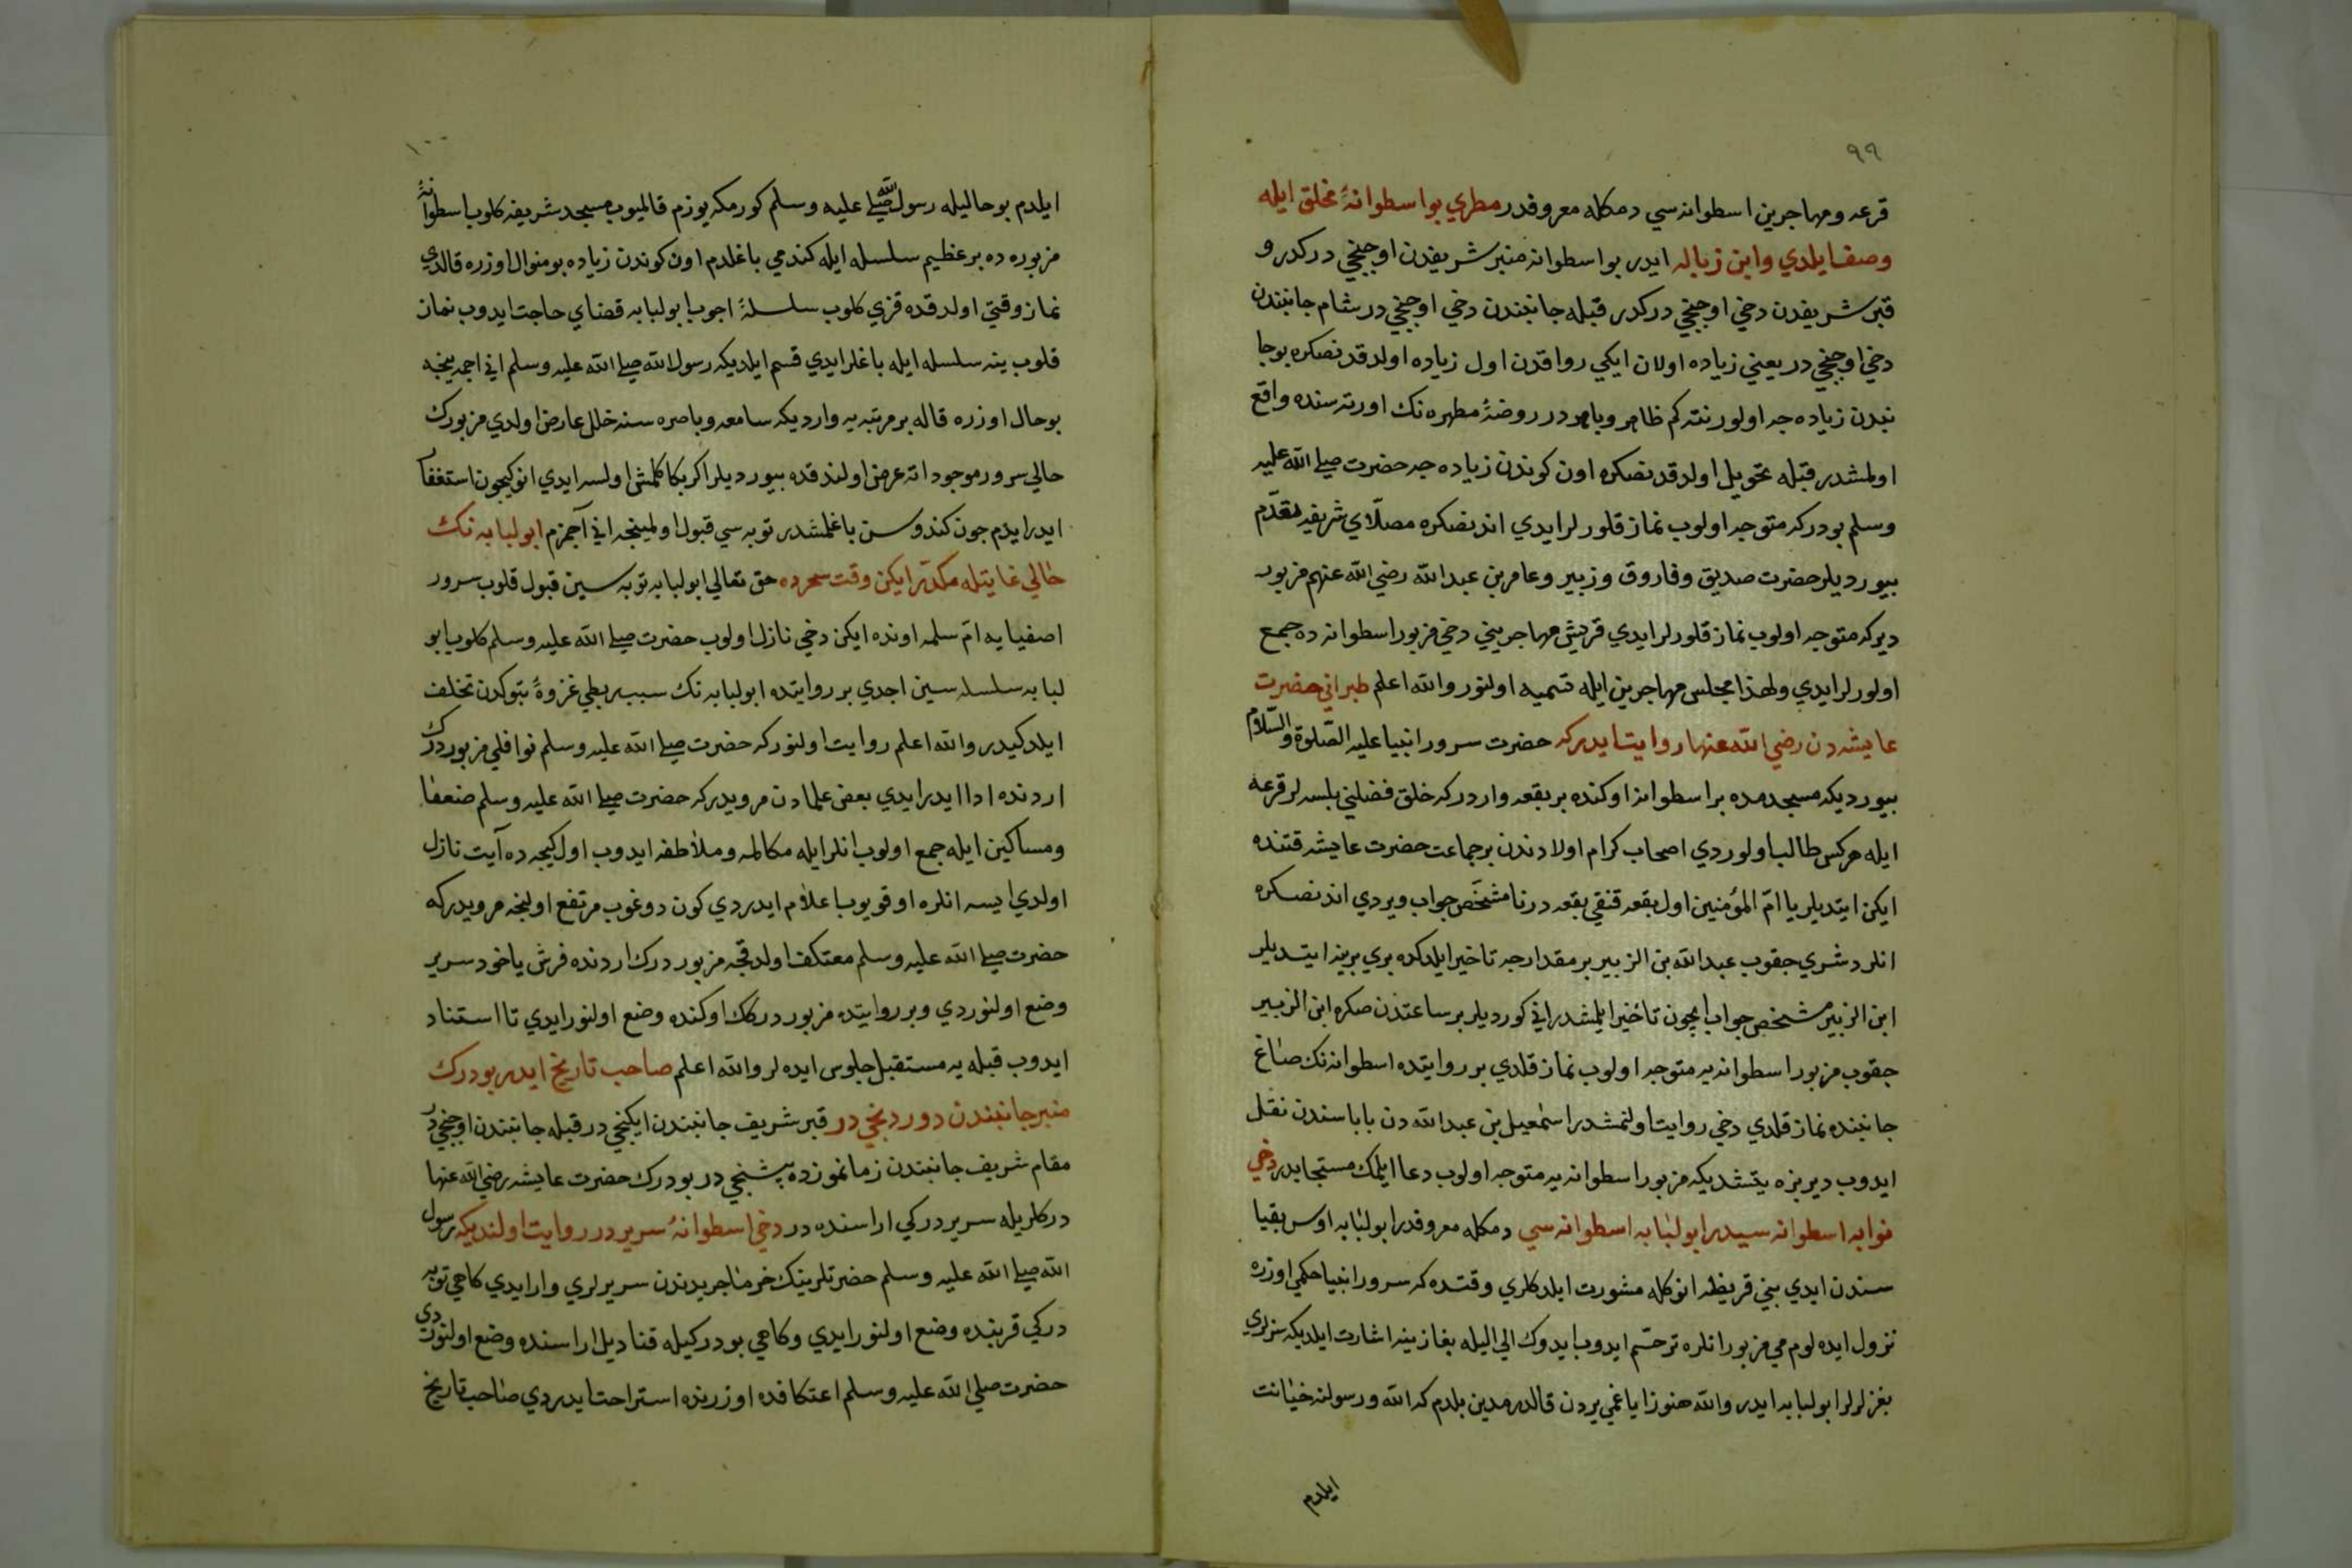 ٩٩
قرعه ومهاجرين اسطوانه سي دمكله معروفدر مطري بو اسطوانهٔ مخلق ايله
وصف ايلدي وابن زباله ايدر بو اسطوانه منبر شريفدن اوجنجي دركدر و
قبر شريفدن دخي اوجنجي دركدر قبله جانبندن دخي اوجنجيدر شام جانبندن
دخي اوجنجيدر يعني زياده اولان ايكي رواقدن اول زياده اولدقدنصكره بوجا
نبدن زياده جه اولور نته كم ظاهر وباهردر روضهٔ مطهره نك اورته سنده واقع
اولمشدر قبله تحويل اولدقدنصكره اون كوندن زياده جه حضرت صلى الله عليه
وسلم بو دركه متوجه اولوب نماز قلورلرايدي اندنصكره مصلّاي شريفه تقدّم
بيورديلر حضرت صديق وفاروق وزبير وعامر بن عبدالله رضي الله عنهم مزبور
ديركه متوجه اولوب نماز قلورلرايدي قريش مهاجريني دخي مزبور اسطوانه ده جمع
اولورلرايدي ولهذا مجلس مهاجرين ايله تسميه اولنور والله اعلم طبراني حضرت
عايشه دن رضي الله عنها روايت ايدركه حضرت سرور انبيا عليه الصّلوة والسّلام
بيورديكه مسجدمده بر اسطوانه اوكنده بر بقعه واردركه خلق فضلني بلسه لر قرعه
ايله هركس طالب اولوردي اصحاب كرام اولادندن بر جماعت حضرت عايشه قتنده
ايكن ايتديلر يا امّ المؤمنين اول بقعه قنقي بقعه در نامشخّص جواب ويردي اندنصكره
انلر دشري جقوب عبدالله بن الزبير بر مقدارجه تاخير ايلدكده بري برينه ايتديلر
ابن الزبير مشخص جواب ايجون تأخير ايلمشدر اني كورديلر بر ساعتدن صكره ابن الزبير
جقوب مزبور اسطوانه يه متوجه اولوب نماز قلدي بر روايتده اسطوانه نك صاغ
جانبنده نماز قلدي دخي روايت اولنمشدر اسمعيل بن عبدالله دن باباسندن نقل
ايدوب ديربزه يتشديكه مزبور اسطوانه يه متوجه اولوب دعا ايلمك مستجابدر دخي
توابه اسطوانه سيدر ابو لبابه اسطوانه سي دمكله معروفدر ابو لبابه اوس بقيا
سندن ايدي بني قريظه انوكله مشورت ايلدكلري وقتده كه سرور انبيا حكمي اوزره
نزول ايده لوم مي مزبور انلره ترحّم ايدوب ايدوك الي اليله بغازينه اشارت ايلديكه سزلري
بغزلرلر ابو لبابه ايدر والله هنوز اياغمي يردن قالدرمدين بلدم كه الله ورسولنه خيانت
ايلدم
١٠٠
ايلدم بو حاليله رسول الله صلى عليه وسلم كورمكه يوزم قالميوب مسجد شريفه كلوب اسطوانهٔ
مزبوره ده بر عظيم سلسله ايله كندمي باغلدم اون كوندن زياده بو منوال اوزره قالدي
نماز وقتي اولدقده قزي كلوب سلسلهٔ اجوب ابو لبابه قضاي حاجت ايدوب نماز
قلوب ينه سلسله ايله باغلرايدي قسم ايلديكه رسول الله صلى الله عليه وسلم اني اجمينجه
بو حال اوزره قاله بر مرتبه يه وارديكه سامعه وباصره سنه خلل عارض اولدي مزبورك
حالي سرور موجوداته عرض اولندقده بيورديلر اكر بكا كلمش اولسه ايدي انوكيجون استغفا
ايدرايدم جون كندوسن باغلمشدر توبه سي قبول اولمينجه اني آجمزم ابو لبابه نك
حالي غايتله مكدّر ايكن وقت سحرده حق تعالى ابو لبابه توبه سين قبول قلوب سرور
اصفيايه امّ سلمه اونده ايكن دخي نازل اولوب حضرت صلى الله عليه وسلم كلوب ابو
لبابه سلسله سين اجدي بر روايتده ابو لبابه نك سبب ربطي غزوهٔ تبوكدن تخلف
ايلدكيدر والله اعلم روايت اولنوركه حضرت صلى الله عليه وسلم نوافلي مزبور درك
اردنده ادا ايدرايدي بعض علمادن مرويدركه حضرت صلى الله عليه وسلم ضعفا
ومساكين ايله جمع اولوب انلرايله مكالمه وملاطفه ايدوب اول كيجه ده آيت نازل
اولدي ايسه انلره اوقويوب اعلام ايدردي كون دوغوب مرتفع اولنجه مرويدركه
حضرت صلى الله عليه وسلم معتكف اولدقجه مزبور درك اردنده فرش ياخود سرير
وضع اولنوردي وبر روايتده مزبور دركك اوكنده وضع اولنورايدي تا استناد
ايدوب قبله يه مستقبل جلوس ايده لر والله اعلم صاحب تاريخ ايدر بو درك
منبر جانبندن دوردنجيدر قبر شريف جانبندن ايكنجيدر قبله جانبندن اوجنجيدر
مقام شريف جانبندن زمانموزده بشنجيدر بو درك حضرت عايشه رضي الله عنها
دركلريله سرير دركي اراسنده در دخي اسطوانهٔ سريردر روايت اولنديكه رسول
الله صلى الله عليه وسلم حضرتلرينك خرما جريدندن سريرلري وارايدي كاهي توبه
دركي قربنده وضع اولنورايدي وكاهي بو دركيله قناديل اراسنده وضع اولنوردي
حضرت صلى الله عليه وسلم اعتكافده اوزرنده استراحت ايدردي صاحب تاريخ